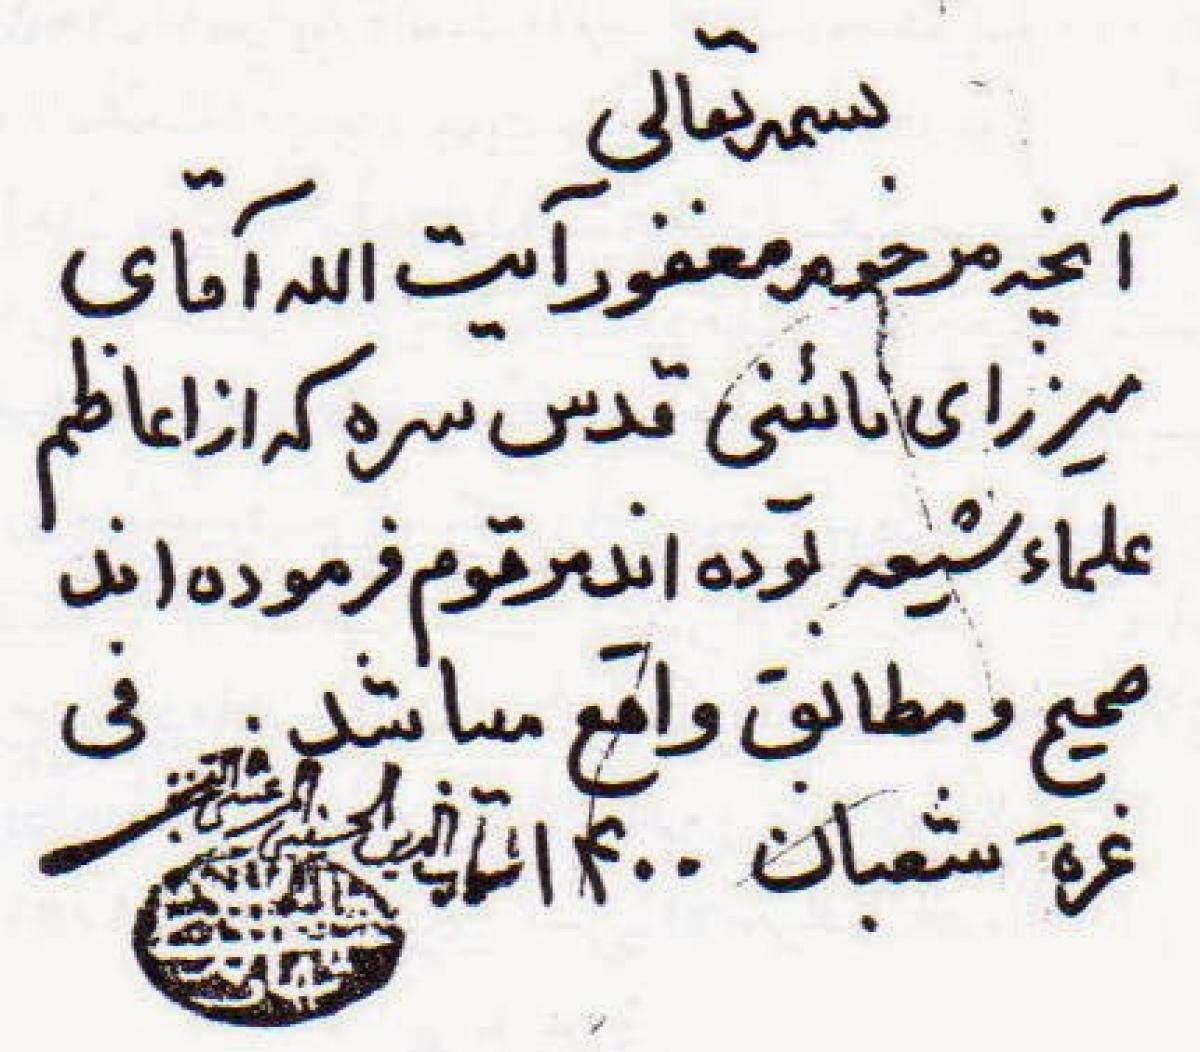 بسمه تعالی
آنچه مرحوم مغفور آیت الله آقای
میرزای نائنی قدس سره که از اعاظم
علماء شیعه بوده اند مرقوم فرموده اند
صحیح و مطابق واقع میباشد. فی
غرة شعبان ۱۴۰۰
شهاب الدین الحسینی المرعشی النجفی